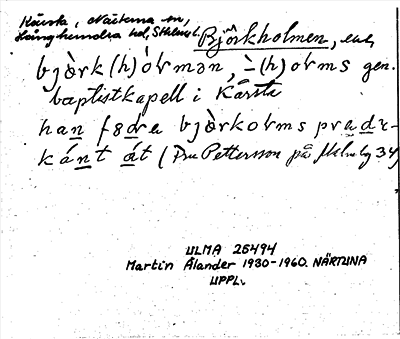 Kårsta, Närtuna sn,
Långhundra hd, Sthlms l.
Björkholmen, enl.
bjò̀rk(h)órmən, -̀(h)orms gen.
baptistkapell i Kårsta
han fødrə bjò̀rkorms pradi-
kánt át (Fru Pettersson på Malmby 34)
ULMA 26494
Martin Ålander 1930-1960. NÄRTUNA
UPPL.